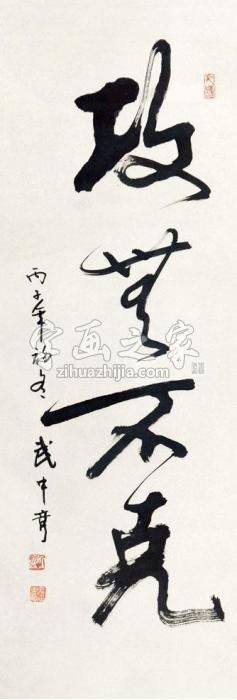 攻无不克
丙子年初冬 武中奇
字画之家
zihuazhijia.com